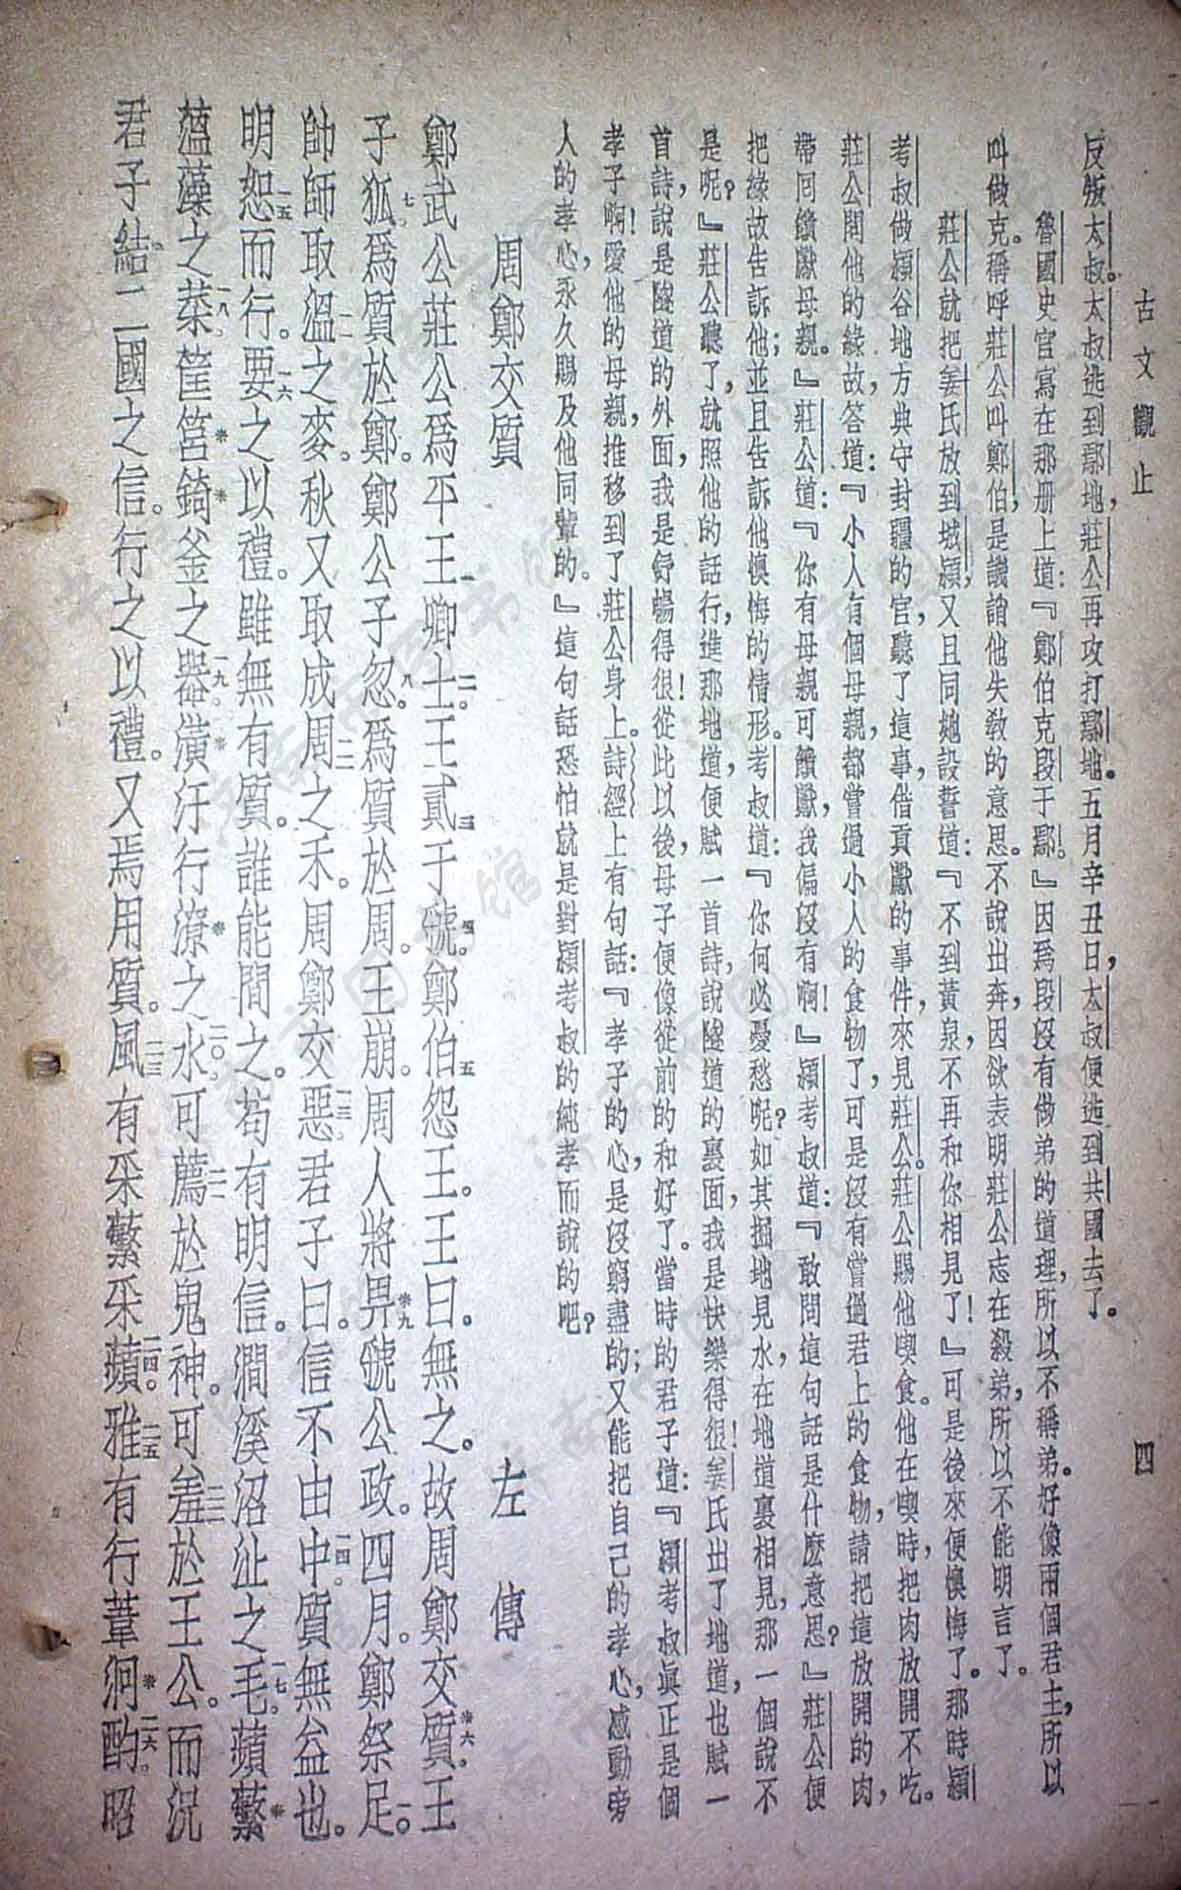 古文觀止
四
反叛太叔。太叔逃到鄢地，莊公再攻打鄢地。五月辛丑日，太叔便逃到共國去了。
魯國史官寫在那册上道：『鄭伯克段于鄢。』因爲段沒有做弟的道理，所以不稱弟。好像兩個君主，所以
叫做克。稱呼莊公叫鄭伯，是譏誚他失教的意思。不說出奔，因欲表明莊公志在殺弟，所以不能明言了。
莊公就把姜氏放到城潁，又且同她設誓道：『不到黃泉，不再和你相見了！』可是後來便懊悔了。那時潁
考叔做潁谷地方典守封疆的官，聽了這事，借貢獻的事件，來見莊公。莊公賜他喫食。他在喫時，把肉放開不吃。
莊公問他的緣故，答道：『小人有個母親，都嘗過小人的食物了，可是沒有嘗過君上的食物，請把這放開的肉，
帶回餽獻母親。』莊公道：『你有母親可餽獻，我偏沒有啊！』潁考叔道：『敢問這句話是什麽意思？』莊公便
把緣故告訴他；並且告訴他懊悔的情形。考叔道：『你何必憂愁呢？如其掘地見水，在地道裏相見，那一個說不
是呢？』莊公聽了，就照他的話行，進那地道，便賦一首詩，說隧道的裏面，我是快樂得很！姜氏出了地道，也賦一
首詩，說是隧道的外面，我是舒暢得很！從此以後，母子便像從前的和好了。當時的君子道：『潁考叔眞正是個
孝子啊！愛他的母親，推移到了莊公身上。詩經上有句話：『孝子的心，是沒窮盡的；又能把自己的孝心，感動旁
人的孝心，永久賜及他同輩的。』這句話恐怕就是對潁考叔的純孝而說的吧？
周鄭交質 左傳
鄭武公莊公爲平王一卿士二。王貳三于虢四。鄭伯五怨王。王曰。無之。故周鄭交質※六。王
子狐七爲質於鄭。鄭公子忽八。爲質於周。王崩。周人將畀※九虢公政。四月。鄭祭足一〇。
帥師取溫一一之麥。秋又取成周一二之禾。周鄭交惡一三。君子曰。信不由中一四。質無益也。
明恕一五而行。要一六之以禮。雖無有質。誰能間之。苟有明信。澗溪沼沚之毛一七。蘋蘩※
薀藻之菜一八。筐筥※錡※釜之器一九。潢※汙行潦※之水二〇。可薦二一於鬼神。可羞二二於王公。而況
君子結二國之信。行之以禮。又焉用質。風二三有采蘩采蘋二四。雅二五有行葦泂※酌二六。昭